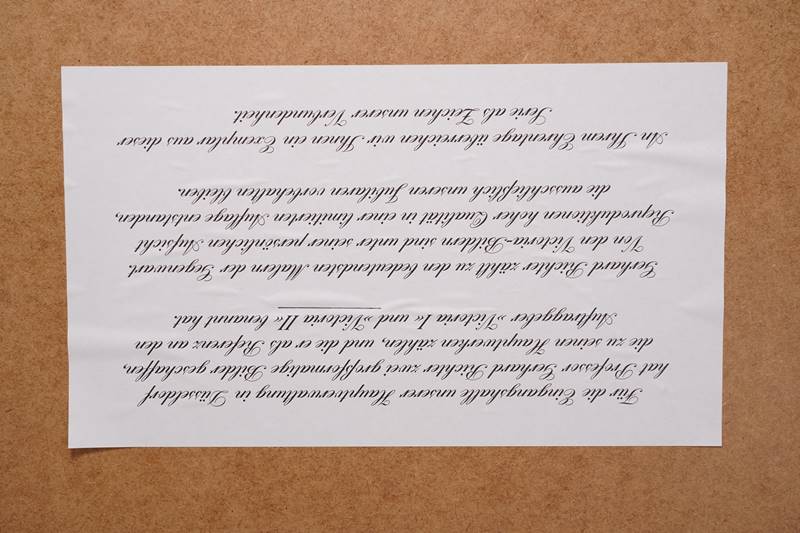 Für die Eingangshalle unserer Hauptverwaltung in Düsseldorf
hat Professor Gerhard Richter zwei großformatige Bilder geschaffen,
die zu seinen Hauptwerken zählen, und die er als Referenz an den
Auftraggeber »Victoria I« und »Victoria II« benannt hat.
Gerhard Richter zählt zu den bedeutendsten Malern der Gegenwart.
Von den Victoria-Bildern sind unter seiner persönlichen Aufsicht
Reproduktionen hoher Qualität in einer limitierten Auflage entstanden,
die ausschließlich unseren Jubilaren vorbehalten bleiben.
An Ihrem Ehrentage überreichen wir Ihnen ein Exemplar aus dieser
Serie als Zeichen unserer Verbundenheit.